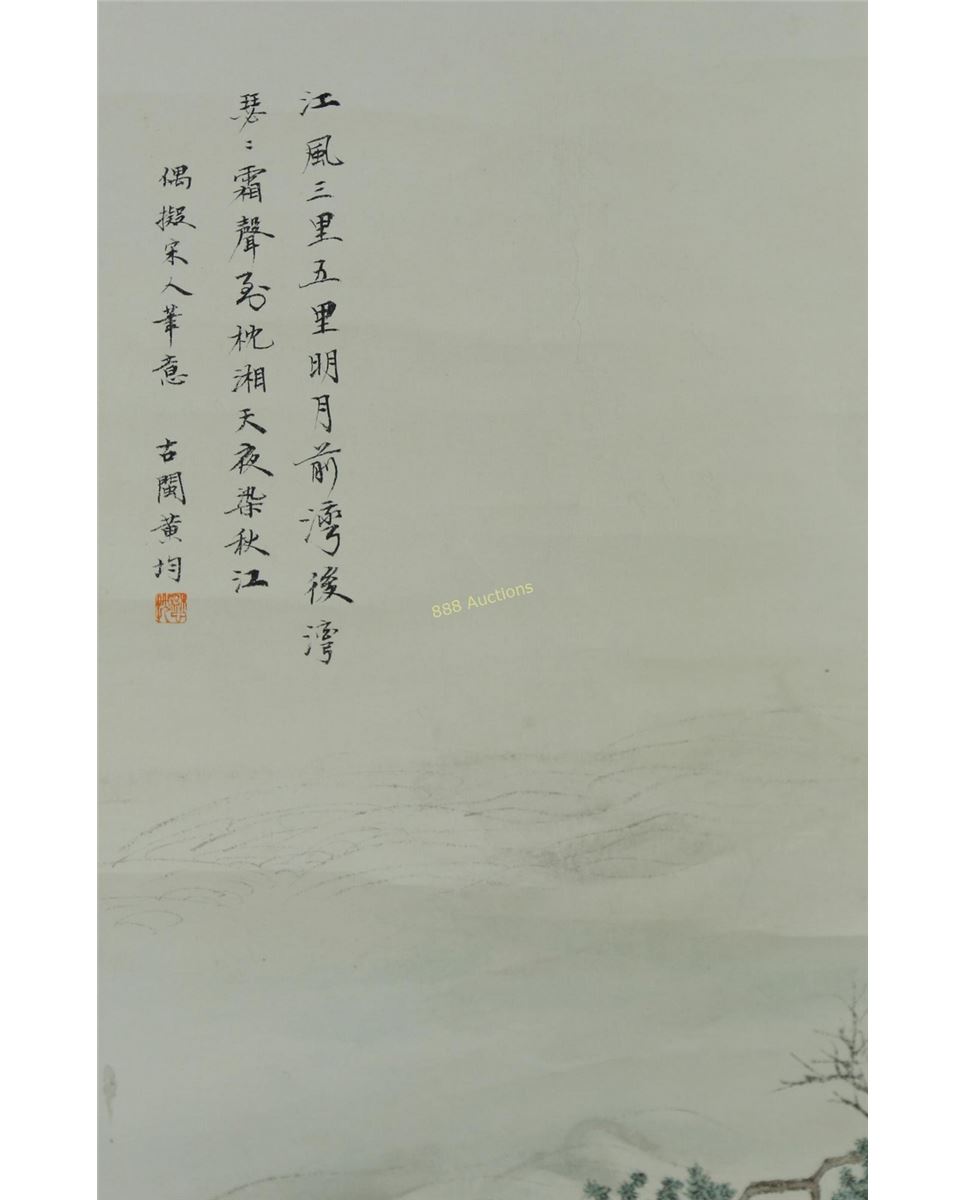 江風三里五里明月前灣後灣
瑟〻霜聲到枕湘天夜染秋江
偶擬宋人筆意 古閩黃均
888 Auctions